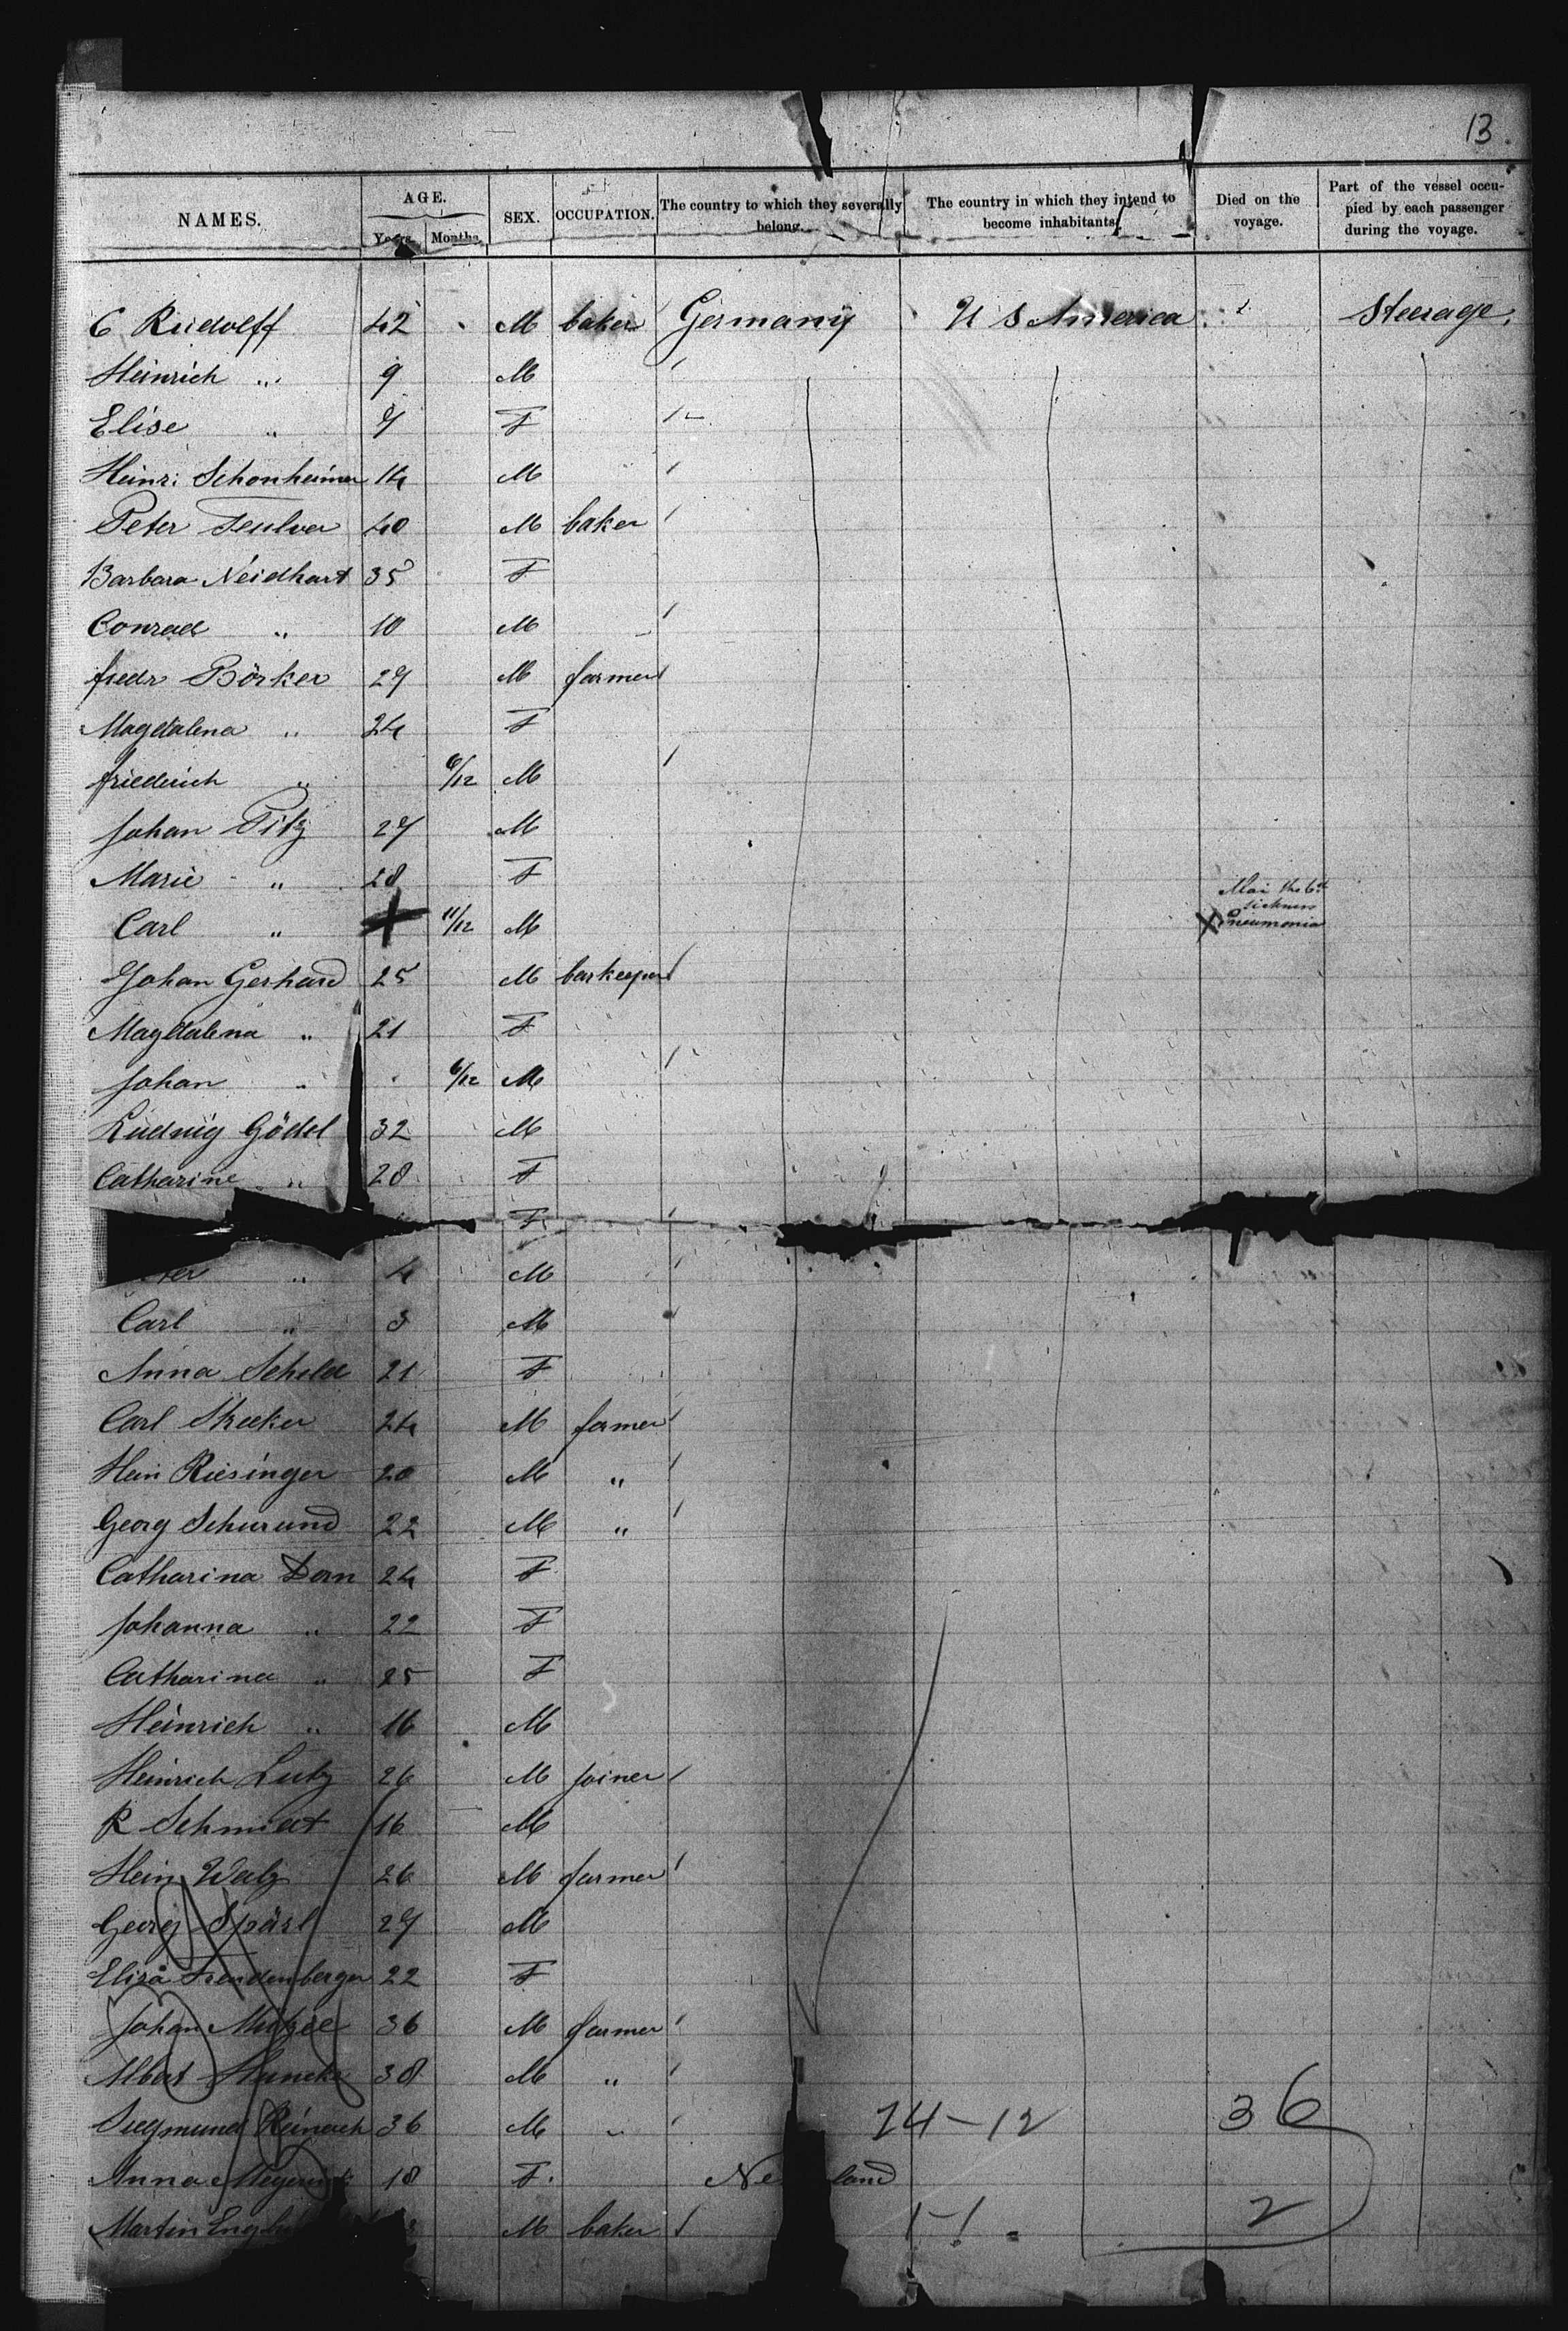 13.
NAMES. AGE. Years. Months. SEX. OCCUPATION. The country to which they severally belong. The country in which they intend to become inhabitants. Died on the voyage. Part of the vessel occupied by each passenger during the voyage.
C Rudolff 42 M baker Germany U S America Steerage
Heinrich " 9 M
Elise " 7 F
Heinr: Schonheimer 14 M
Peter 40 M baker
Barbara Neidhart 35 F
Conrad " 10 M
friedr Börker 27 M farmer
Magdalena " 24 F
friederich " 6/12 M
Johan Pitz 27 M
Marie " 28 F
Carl " 11/12 M Mai the 6th sickness Pneumonia
Johan Gerhard 25 M barkeeper
Magdalena " 21 F
Johan " 6/12 M
Ludwig Gödel 32 M
Catharine " 28 F
F
" 4 M
Carl " 3 M
Anna Schild 21 F
Carl Strecker 24 M farmer
Hein Riesinger 20 M "
Georg Schurund 22 M "
Catharina Dorn 24 F
Johanna " 22 F
Catharina " 25 F
Heinrich " 16 M
Heinrich Lutz 26 M joiner
R Schmidt 16 M
Hein Walz 26 M farmer
Georg Spärl 27 M
Elisa Freudenberger 22 F
Johan 36 M farmer
Albert 38 M "
Siegmund Reinach 36 M " 24-12 36
Anna 18 F.
Martin M baker 1-1 = 2